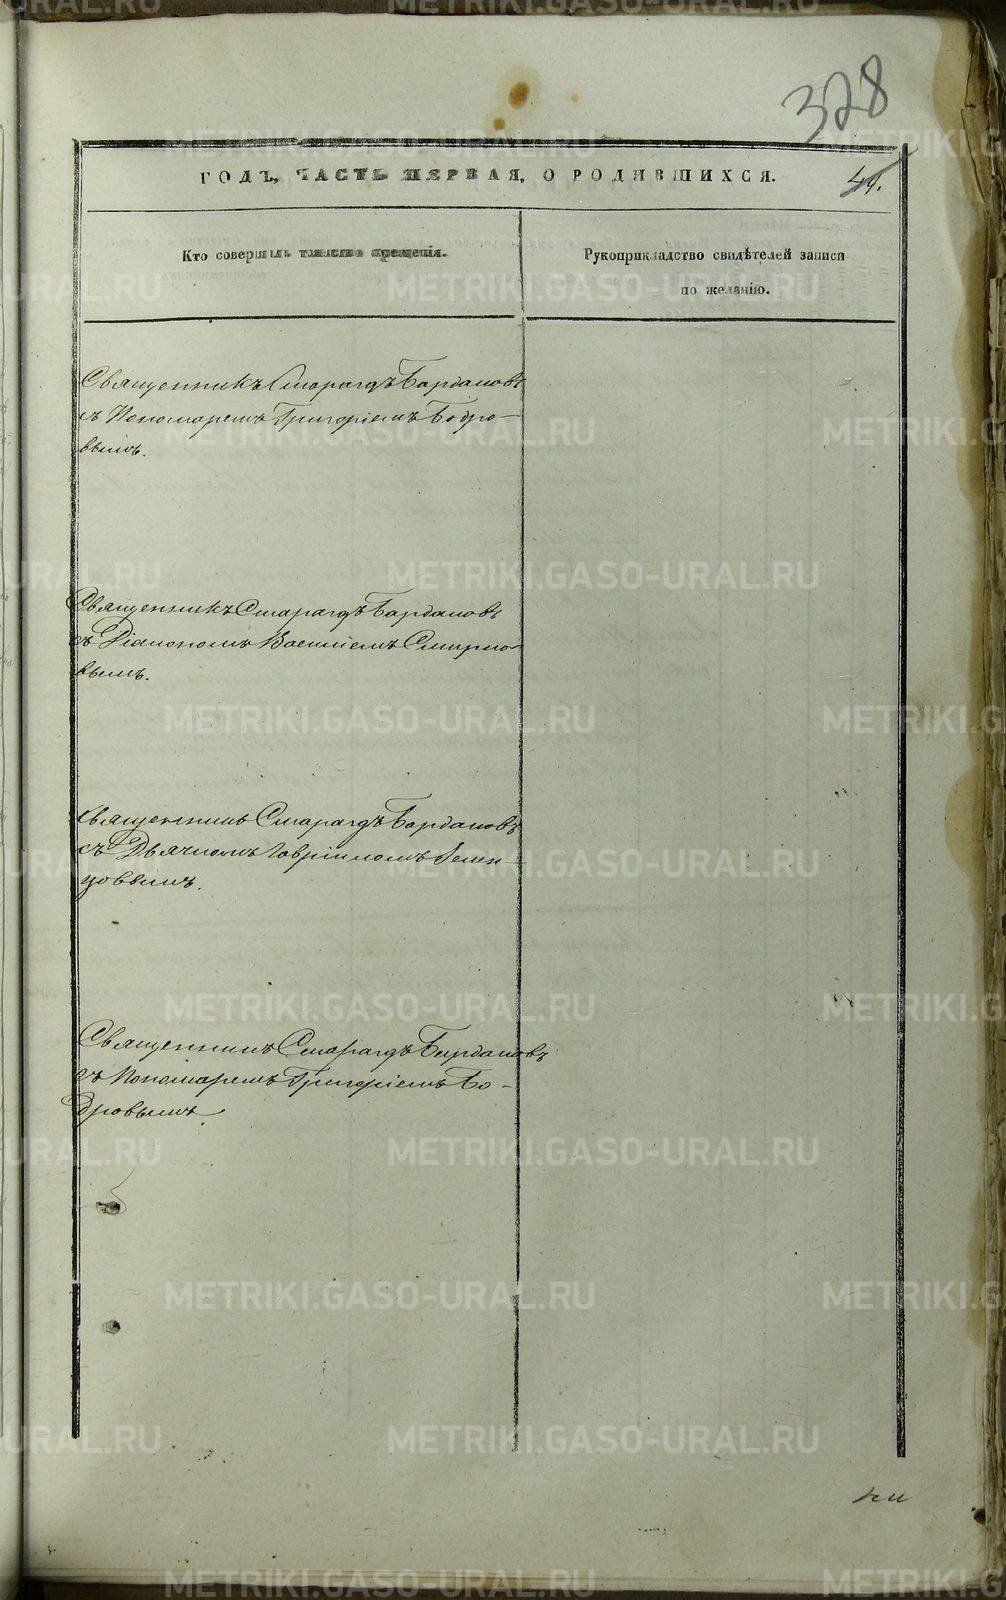 328
ГОДЪ, ЧАСТЬ ПЕРВАЯ, О РОДИВШИХСЯ.
44.
Кто совершалъ таинство крещенія.
Рукоприкладство свидѣтелей записи
по желанію.
Священникъ Смарагдъ Бардаковъ
съ Пономаремъ Григоріемъ Бодро-
вымъ.
Священникъ Смарагдъ Бардаковъ
съ Діакономъ Василіемъ Смирно-
вымъ.
Священникъ Смарагдъ Бардаковъ
съ Дьячкомъ Гавріиломъ Земен-
цовымъ.
Священникъ Смарагдъ Бардаковъ
съ Пономаремъ Григоріемъ Бо-
дровымъ.
METRIKI.GASO-URAL.RU